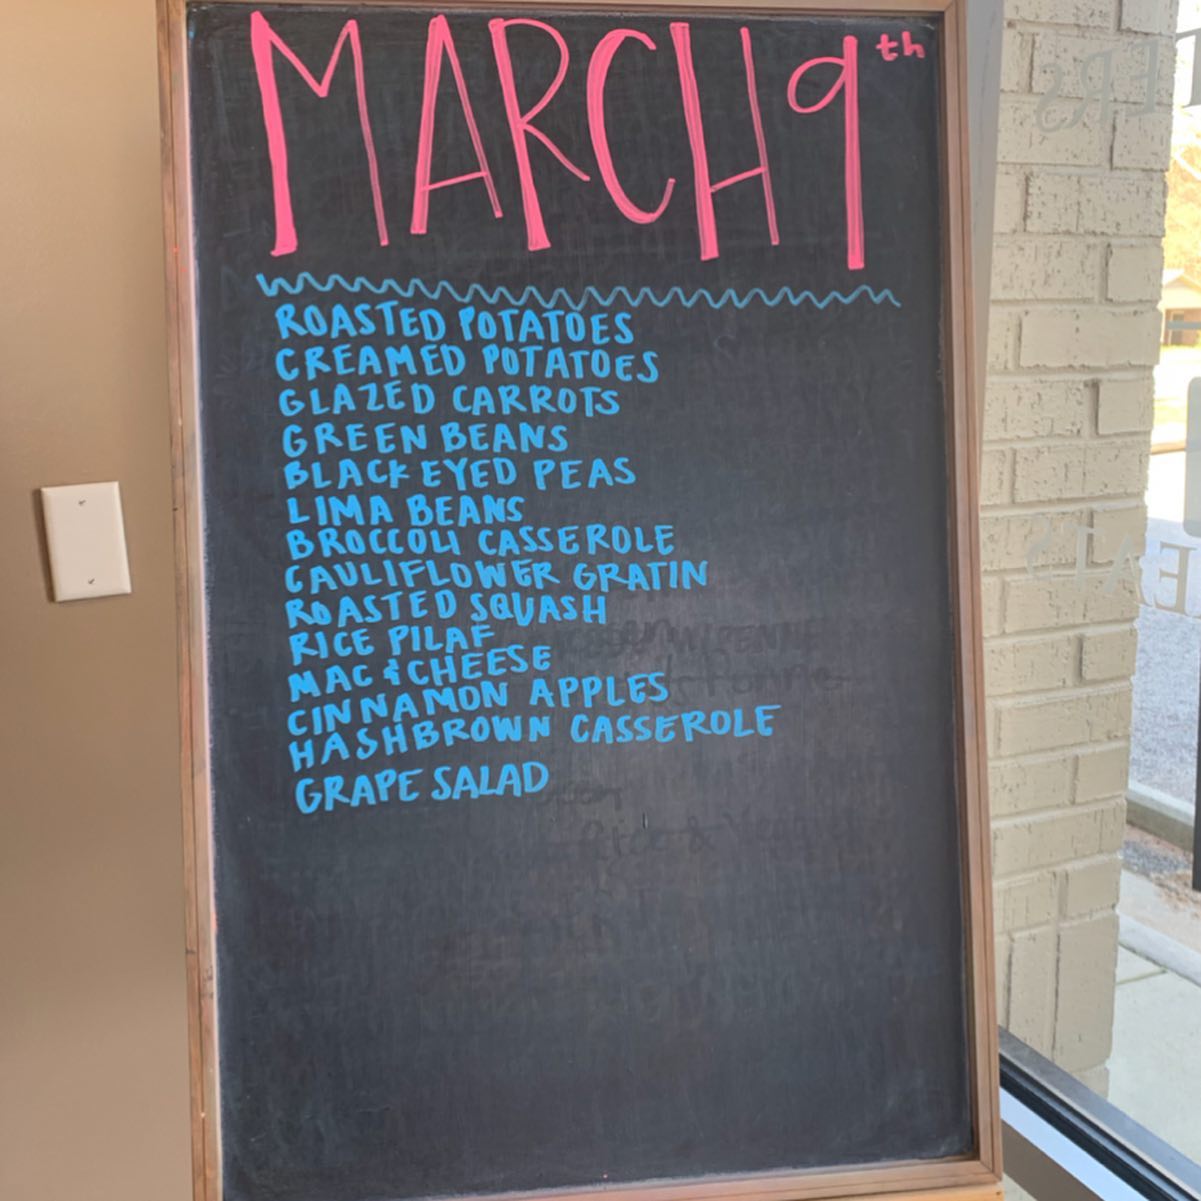 MARCH 9th
ROASTED POTATOES
CREAMED POTATOES
GLAZED CARROTS
GREEN BEANS
BLACK EYED PEAS
LIMA BEANS
BROCCOLI CASSEROLE
CAULIFLOWER GRATIN
ROASTED SQUASH
RICE PILAF
MAC & CHEESE
CINNAMON APPLES
HASHBROWN CASSEROLE
GRAPE SALAD